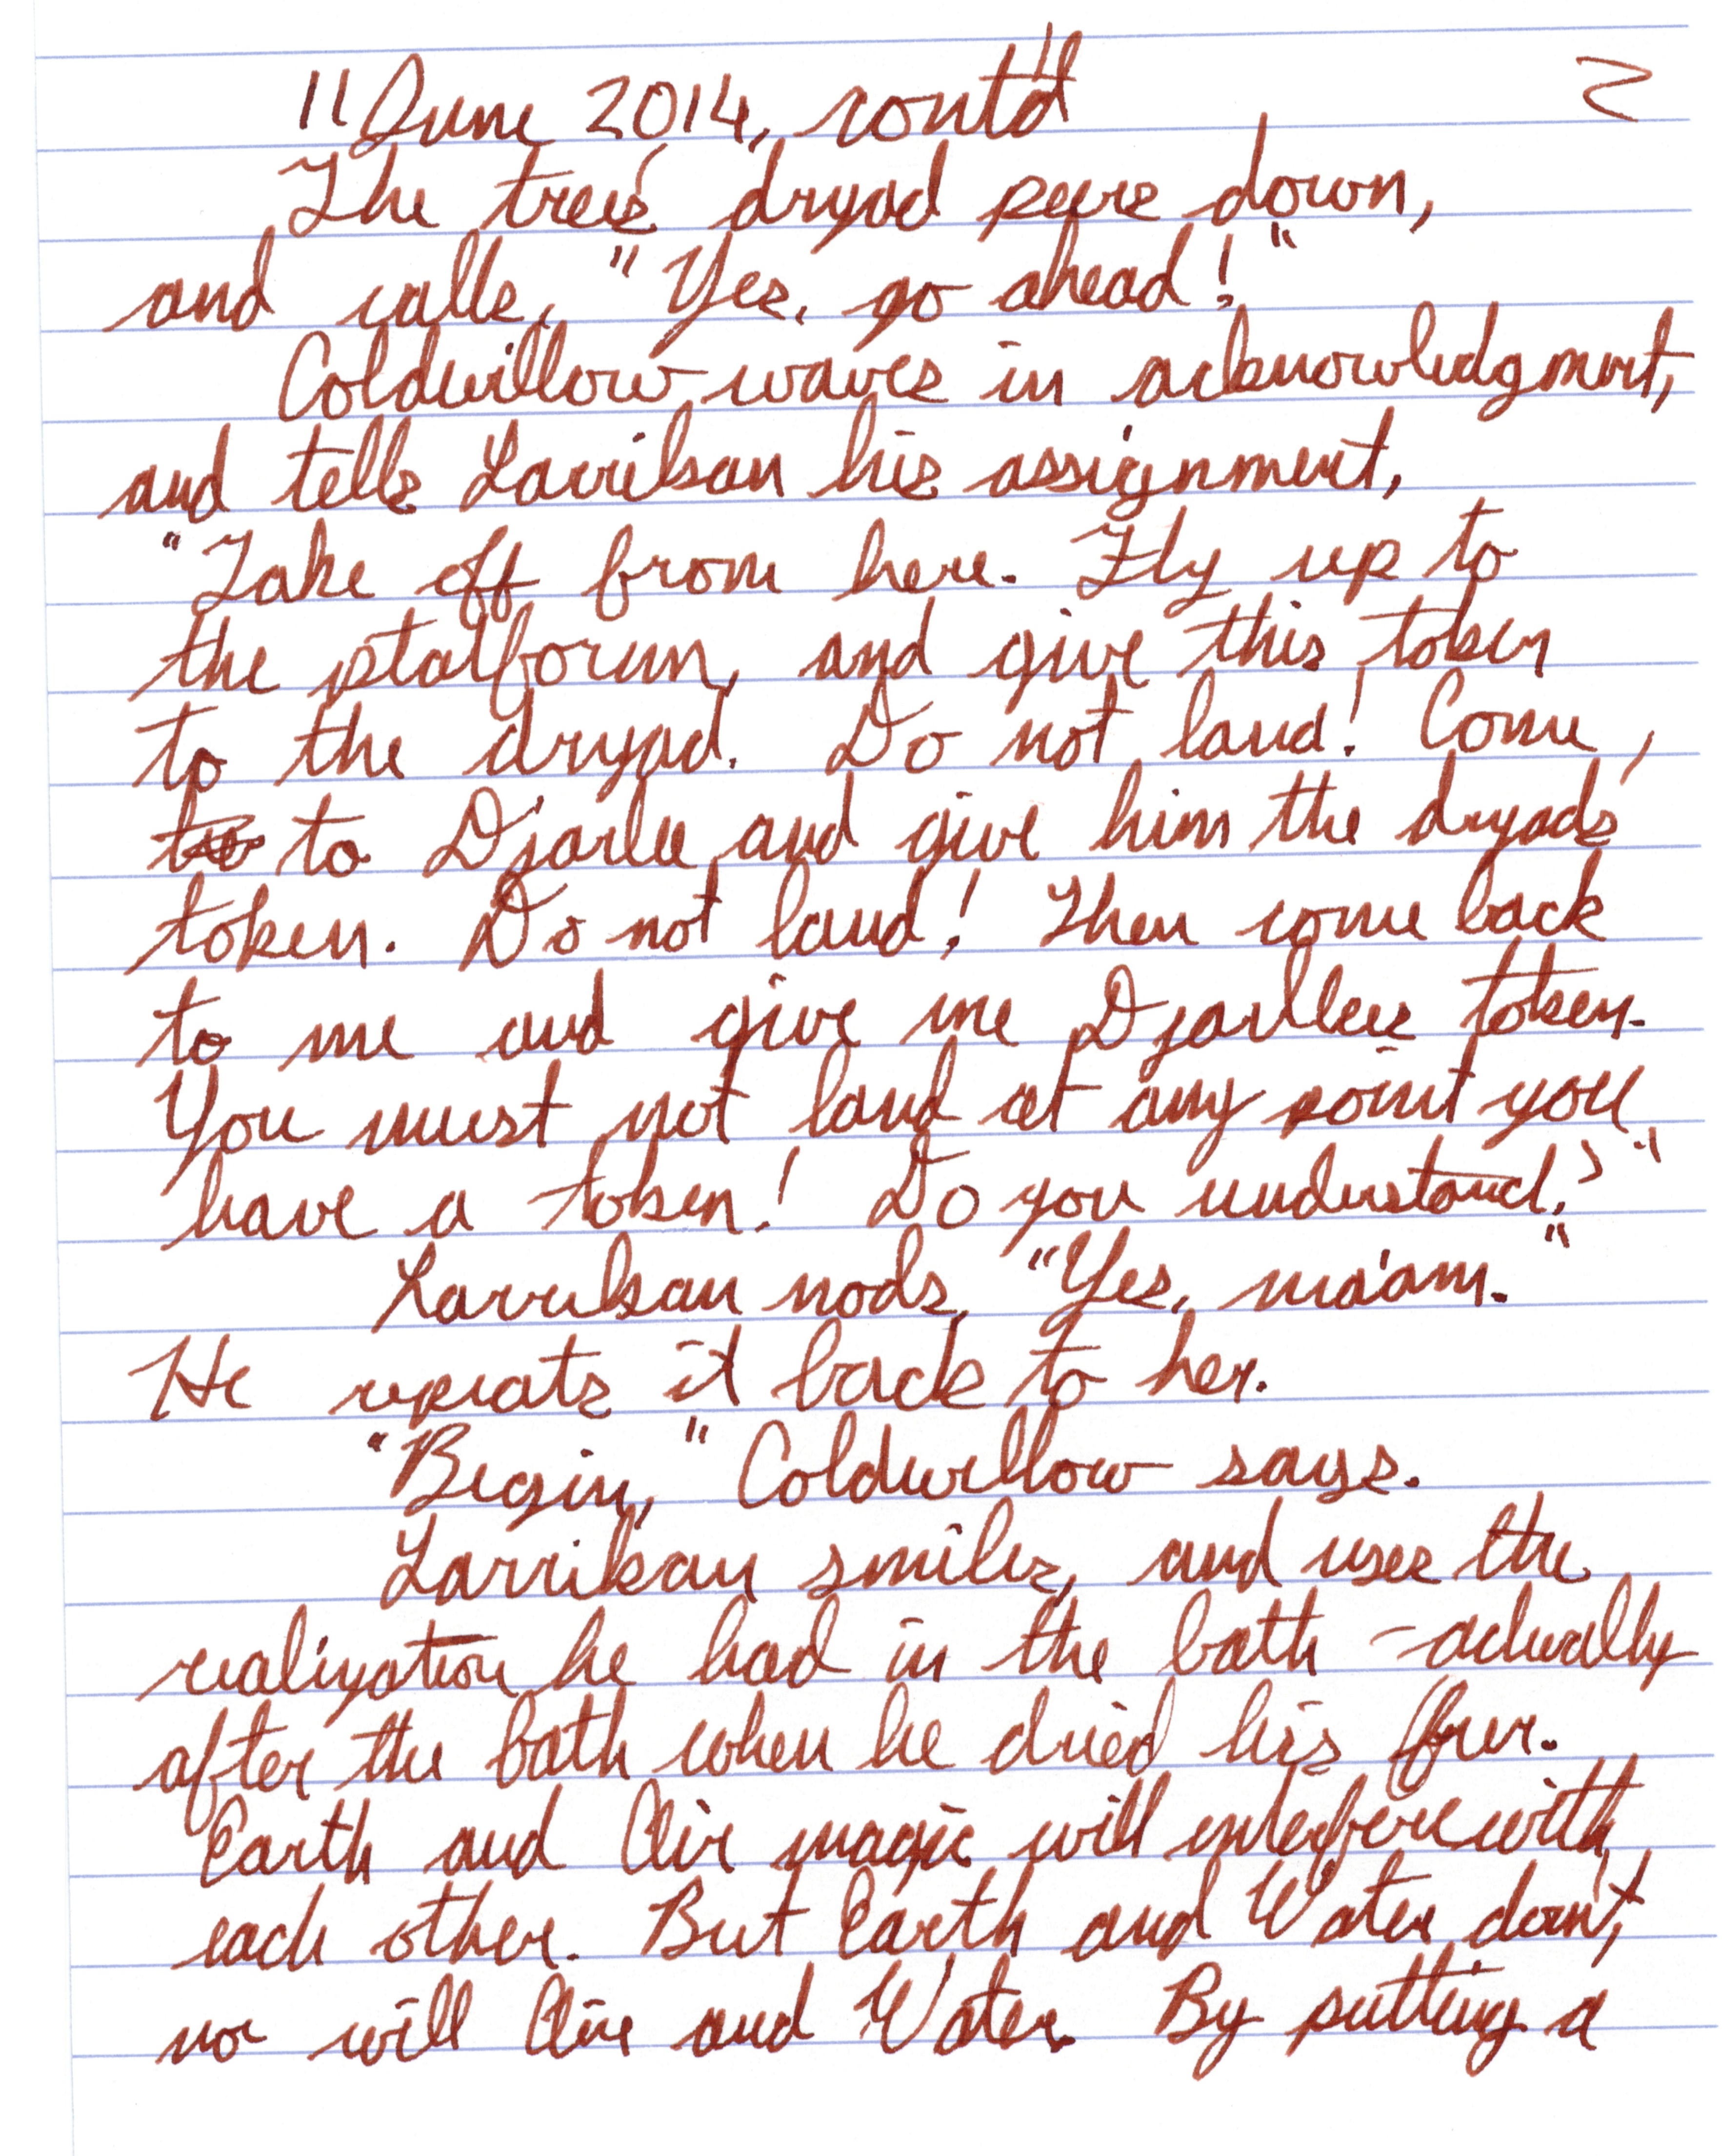 11 June 2014, cont'd 2
The tree's dryad peers down,
and calls, "Yes, go ahead!"
Coldwillow waves in acknowledgment,
and tells Larrikan his assignment,
"Take off from here. Fly up to
the platform, and give this token
to the dryad. Do not land! Come
to Djarlee and give him the dryad's
token. Do not land! Then come back
to me and give me Djarlee's token.
You must not land at any point you
have a token! Do you understand?"
Larrikan nods, "Yes, ma'am."
He repeats it back to her.
"Begin," Coldwillow says.
Larrikan smiles, and uses the
realization he had in the bath - actually
after the bath when he dried his fur.
Earth and Air magic will interfere with
each other. But Earth and Water don't,
nor will Air and Water. By putting a